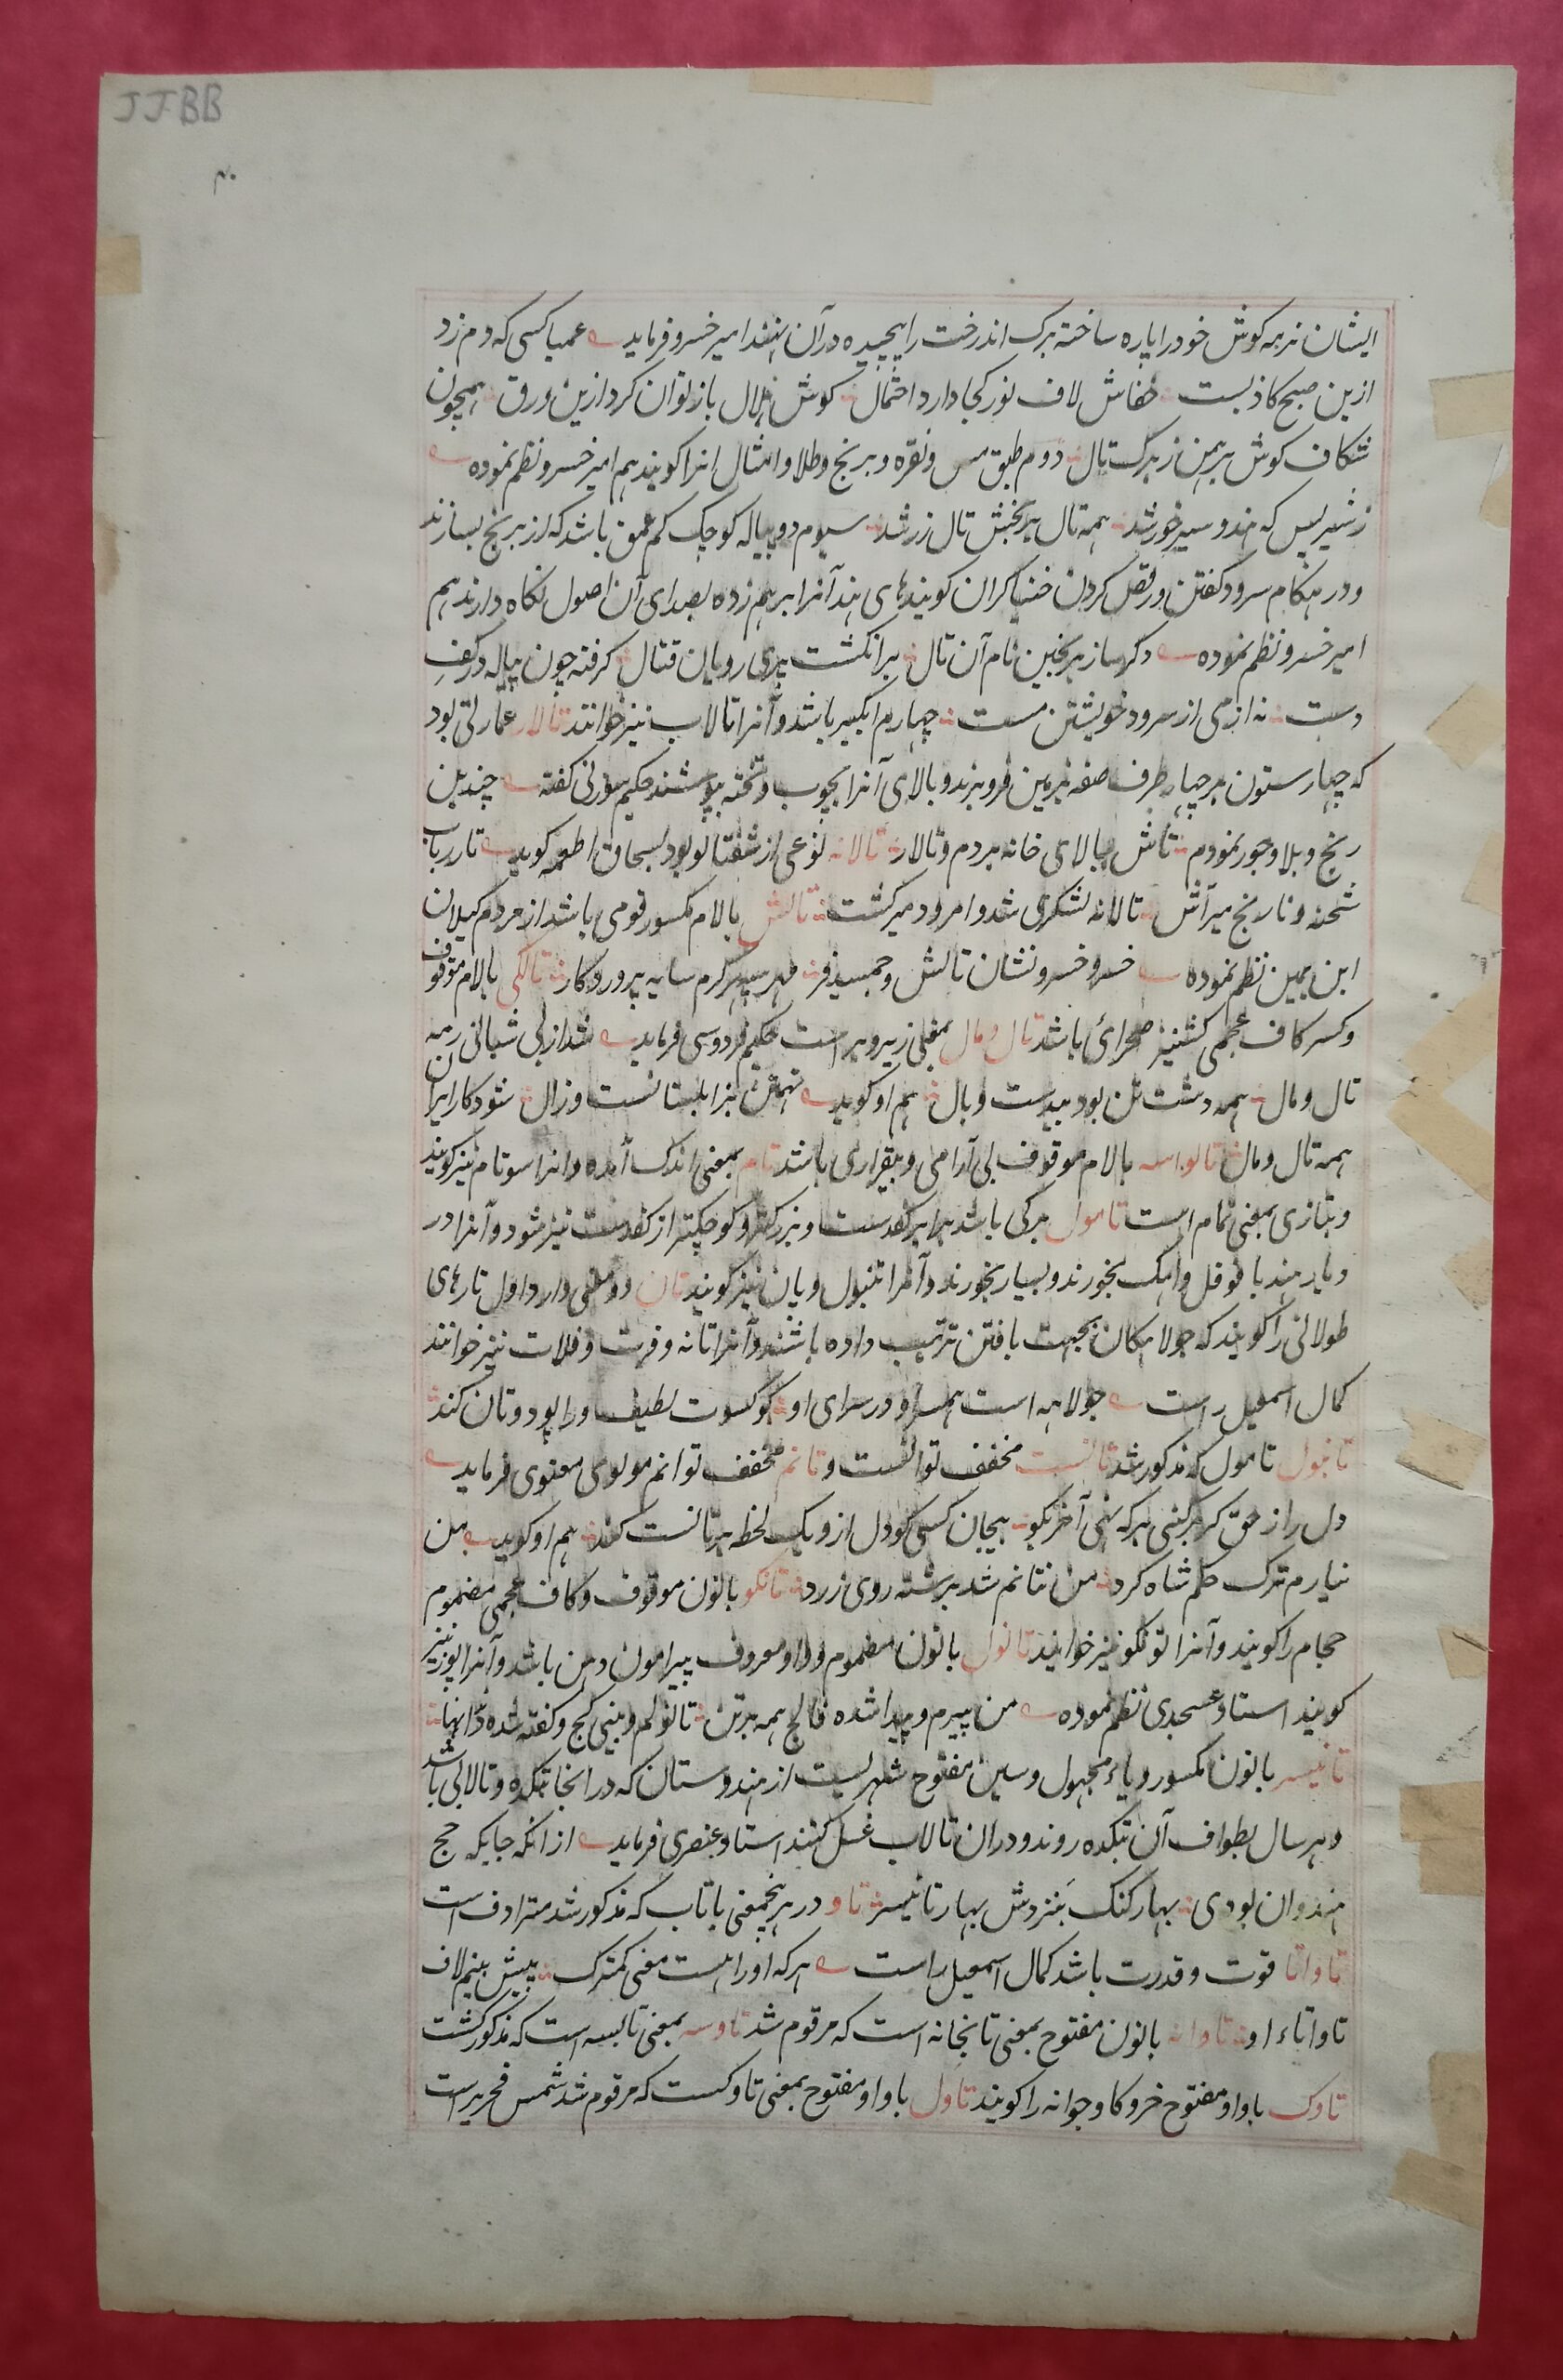 JJBB
ایشان نرمه گوش خود را پاره ساخته برک اندرخت را پیچیده در آن نهند امیر خسرو فرماید عمیا کسی که دم زد
ازین صبح کاذبست خفاش لاف نور کجا دارد احتمال گوش هلال باز توان کرد ازین ورق همچون
شکاف گوش برهمن ز برک تال دوم طبق مس و نقره و برنج و طلا و امثال انرا کویند هم امیر خسرو نظم نموده
ز شیر پس که هندو سیر خور شد همه تال برنجش تال زر شد سیوم دو پیاله کوچک کم عمق باشد که از برنج بسازند
و در هنکام سرود کفتن و رقص کردن خنیاکران کویندهای هند آنرا بر هم زده بصدای آن اصول نکاه دارند هم
امیر خسرو نظم نموده دکر ساز برنجین نام آن تال بر انکشت پری رویان قتال کرفته چون پیاله در کف
دست نه از می از سرود خویشتن مست چهارم ابکیر باشد و آنرا تالاب نیز خوانند تالار عمارتی بود
که چهار ستون بر چهار طرف صفه بزمین فرو برند و بالای آنرا بچوب و تخته بپوشند حکیم سوزنی کفته چندین
رنج و بلا و جور نمودم تاش ببالای خانه بردم و تالار تالانه نوعی از شفتالو بود بسحاق اطعمه کوید تا رباب
شحنه و نارنج میر آش تالانه لشکری شد و امرود میر کشت تالش با لام مکسور قومی باشد از مردم کیلان
ابن یمین نظم نموده خسرو خسرو نشان تالش و جمشید فر مهر سپهر کرم سایه پروردکار تالکی با لام موقوف
و کسر کاف عجمی کشنیز صحرائی باشد تال و مال بمعنی زیر و بر است حکیم فردوسی فرماید شد از بی شبانی رمه
تال و مال همه دشت تن بود بیدست و بال هم او کوید تهمتن بزابلستانست و زال شود کار ایران
همه تال و مال تالواسه با لام موقوف بی آرامی و بیقراری باشد تام بمعنی اندک آمده و انرا سوتام نیز کویند
و بتازی بمعنی تمام است تامول برکی باشد برابر کفدست و بزرکتر و کوچکتر از کفدست نیز شود و آنرا در
دیار هند با فوفل و اهک بخورند و بسیار بخورند و آنرا تنبول و پان نیز کویند تان دو معنی دارد اول تارهای
طولانی را کویند که جولاهکان بجهت بافتن ترتیب داده باشند و آنرا تانه و فرت و فلات نیز خوانند
کمال اسمعیل راست جولاهه است همسر او در سرای او کو کسوت لطیف ورا پود و تان کند
تانبول تامول که مذکور شد تانست مخفف توانست و تانم مخفف توانم مولوی معنوی فرماید
دل را ز حق کر برکنی بر که نهی آخر بکو بیجان کسی کو دل ازو یک لحظه بر تانست کند هم او کوید من
نیارم ترک حکم شاه کرد من نتانم شد برشته روی زرد تانکو با نون موقوف و کاف عجمی مضموم
حجام را کویند و آنرا تونکو نیز خوانند تانول با نون مضموم و واو معروف پیرامون دهن باشد و آنرا پوز نیز
کویند استاد عسجدی نظم نموده من پیرم و پیدا شده فالج همه بر تن تانولم و بینی کج و کفته شده دانها
تانیسر با نون مکسور و یاء مجهول و سین مفتوح شهریست از هندوستان که در انجا بتکده و تالابی باشد
و هر سال بطواف آن بتکده روند و دران تالاب غسل کنند استاد عنصری فرماید از انکه جایکه حج
هندوان بودی بهار کنک بنزدش بهار تانیسر تاو در هر پنج معنی با تاب که مذکور شد مترادف است
تاواتا قوت و قدرت باشد کمال اسمعیل راست هر که او را هست معنی کمترک پیش بینم لاف
تاواتاء او تاوانه با نون مفتوح بمعنی تابخانه است که مرقوم شد تاوسه بمعنی تابسه است که مذکور کشت
تاوک با واو مفتوح خر و کاو جوانه را کویند تاول با واو مفتوح بمعنی تاوکست که مرقوم شد شمس فخری راست